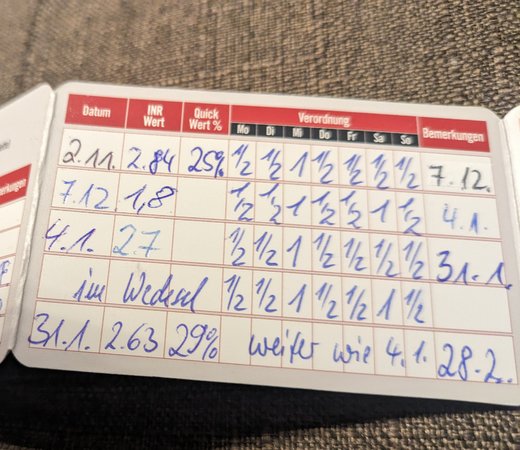 Datum INR Wert Quick Wert % Verordnung Bemerkungen
Mo Di Mi Do Fr Sa So
2.11. 2.84 25% 1/2 1/2 1 1/2 1/2 1/2 1/2 7.12.
7.12. 1,8 1/2 1/2 1 1/2 1/2 1 1/2 4.1.
4.1. 2.7 1/2 1/2 1 1/2 1/2 1/2 1/2 31.1.
im Wechsel 1/2 1/2 1 1/2 1/2 1 1/2
31.1. 2.63 29% weiter wie 4.1. 28.2.